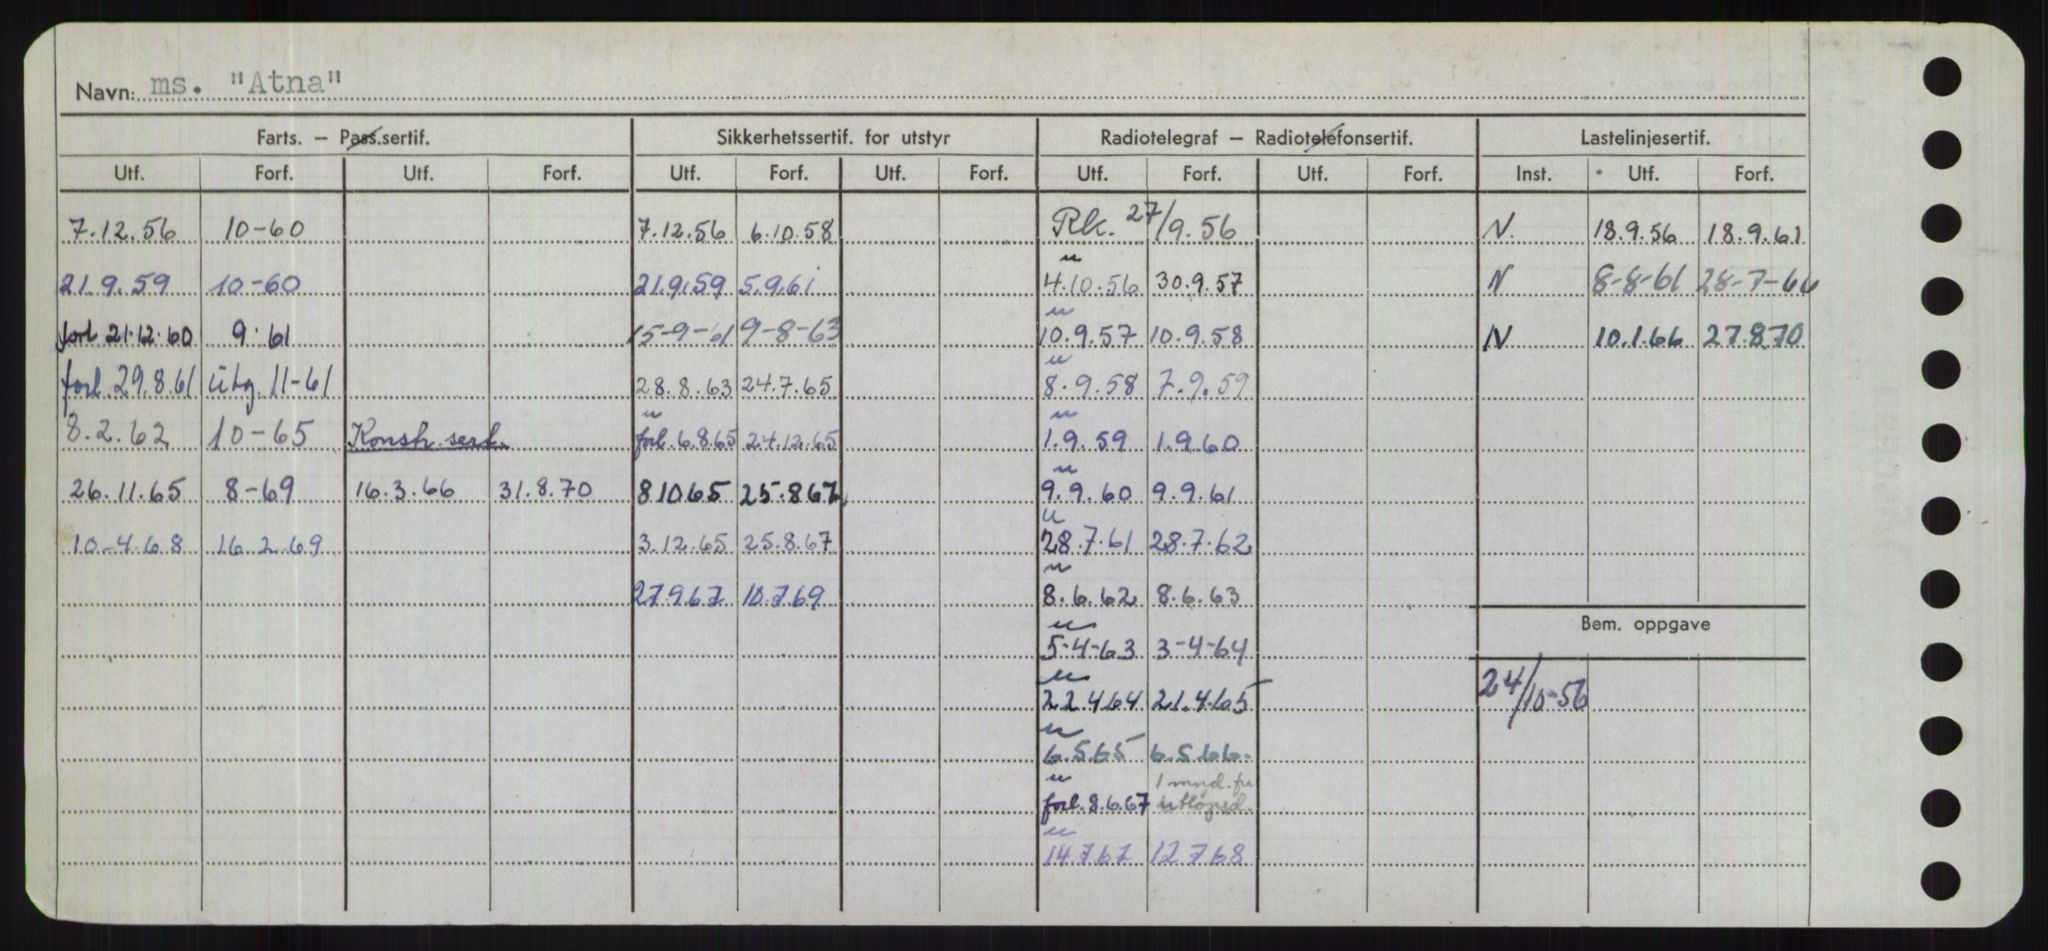 Navn: ms. "Atna"
Farts. – Pass.sertif. Sikkerhetssertif. for utstyr Radiotelegraf – Radiotelefonsertif. Lastelinjesertif.
Utf. Forf. Utf. Forf. Utf. Forf. Utf. Forf. Utf. Forf. Utf. Forf. Inst. Utf. Forf.
7.12.56 10-60 7.12.56 6.10.58 Rk. 27/9.56 N. 18.9.56 18.9.61
21.9.59 10-60 21.9.59 5.9.61 " 4.10.56 30.9.57 N 8-8-61 28-7-66
forl 21.12.60 9.61 15-9-61 9-8-63 " 10.9.57 10.9.58 N 10.1.66 27.8.70
forl. 29.8.61 utg. 11-61 28.8.63 24.7.65 " 8.9.58 7.9.59
8.2.62 10-65 Konstr. sert. " forl. 6.8.65 24.12.65 " 1.9.59 1.9.60
26.11.65 8-69 16.3.66 31.8.70 8 10 65 25.8.67 " 9.9.60 9.9.61
10-4.68 16.2.69 3.12.65 25.8.67 " 28.7.61 28.7.62
27.9.67 10.7.69 " 8.6.62 8.6.63
Bem. oppgave
" 5-4-63 3-4-64
" 22.4.64 21.4.65 24/10-56
" 6.5.65 6.5.66.
" forl. 8.6.67 1 mnd. fra utløpsd.
" 14.7.67 12.7.68